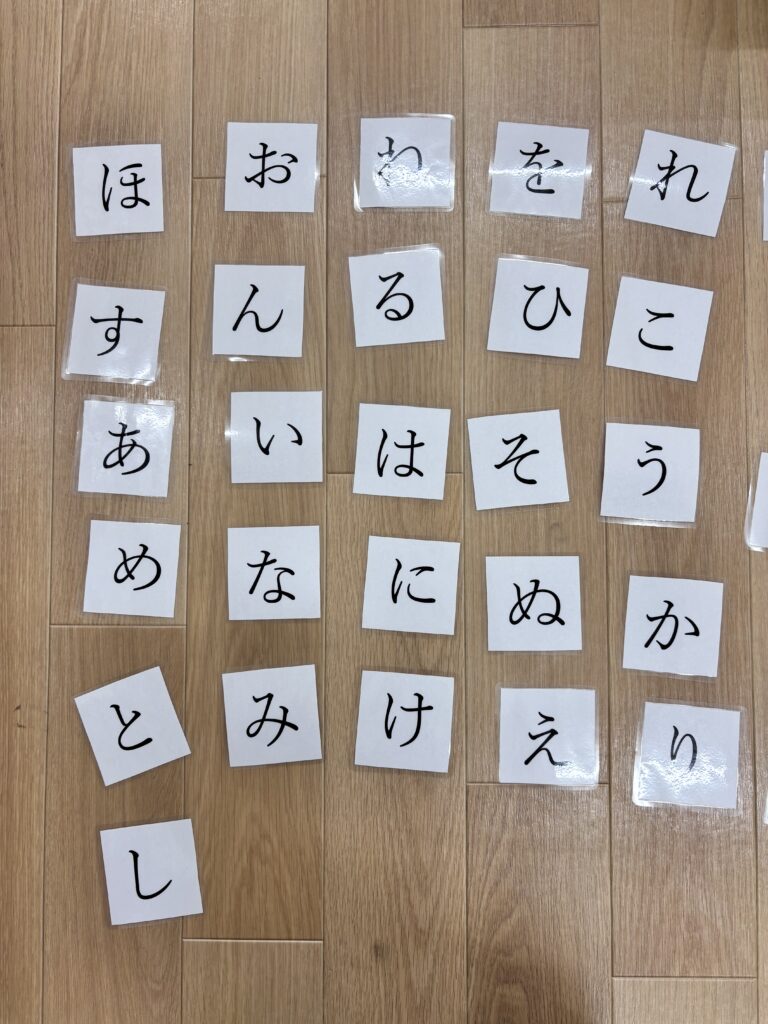 ほ お わ を れ
す ん る ひ こ
あ い は そ う
め な に ぬ か
と み け え り
し